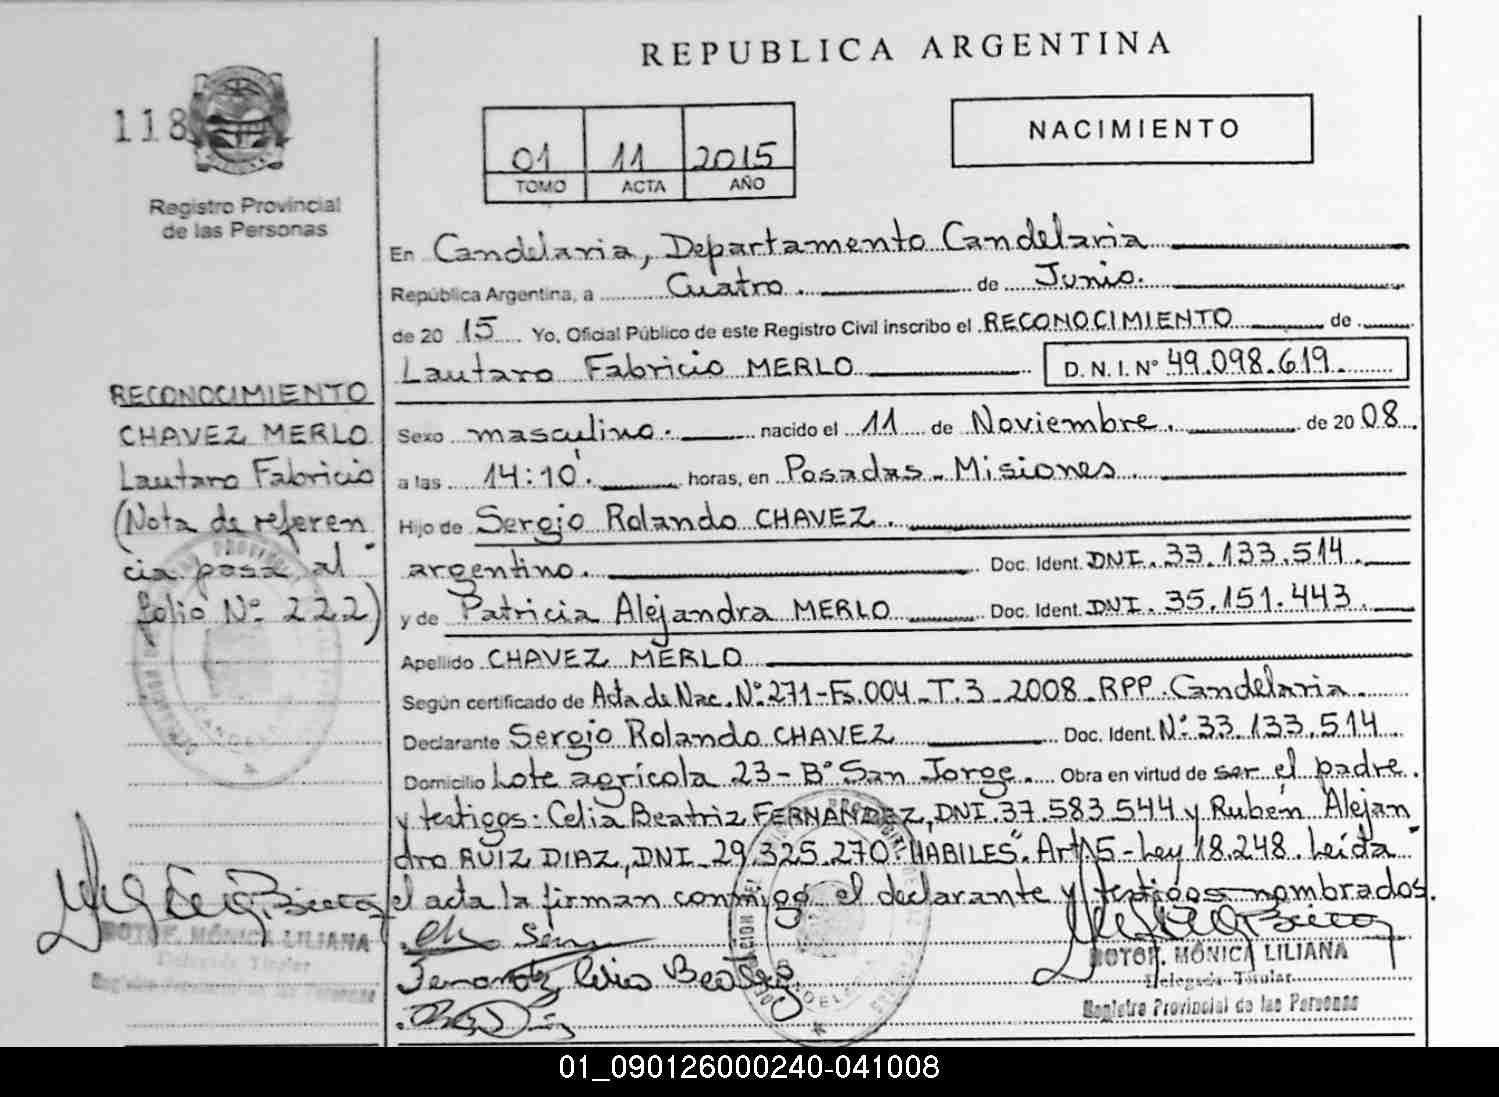 REPUBLICA ARGENTINA
118
Registro Provincial
de las Personas
01 11 2015
TOMO ACTA AÑO
NACIMIENTO
RECONOCIMIENTO
CHAVEZ MERLO
Lautaro Fabricio
(Nota de referen
cia pasa al
folio Nº 222)
En Candelaria, Departamento Candelaria
República Argentina, a Cuatro. de Junio.
de 20 15 Yo, Oficial Público de este Registro Civil inscribo el RECONOCIMIENTO de
Lautaro Fabricio MERLO D. N. I. Nº 49.098.619.
Sexo masculino. nacido el 11 de Noviembre. de 20 08.
a las 14:10'. horas, en Posadas - Misiones.
Hijo de Sergio Rolando CHAVEZ.
argentino. Doc. Ident. DNI. 33.133.514.
y de Patricia Alejandra MERLO Doc. Ident. DNI. 35.151.443.
Apellido CHAVEZ MERLO
Según certificado de Acta de Nac. Nº 271-Fs.004-T.3-2008-RPP. Candelaria.
Declarante Sergio Rolando CHAVEZ Doc. Ident. Nº 33.133.514.
Domicilio Lote agrícola 23 - Bº San Jorge. Obra en virtud de ser el padre.
y testigos: Celia Beatriz FERNANDEZ, DNI. 37.583.544 y Rubén Alejan
dro RUIZ DIAZ, DNI. 29.325.270 "HABILES". Art. 15 - Ley 18.248. Leída
el acta la firman conmigo el declarante y testigos nombrados.
Fernandez Celia Beatriz
BOTOF. MÓNICA LILIANA
Delegada Titular
Registro Provincial de las Personas
BOTOF. MÓNICA LILIANA
Delegada Titular
Registro Provincial de las Personas
01_090126000240-041008